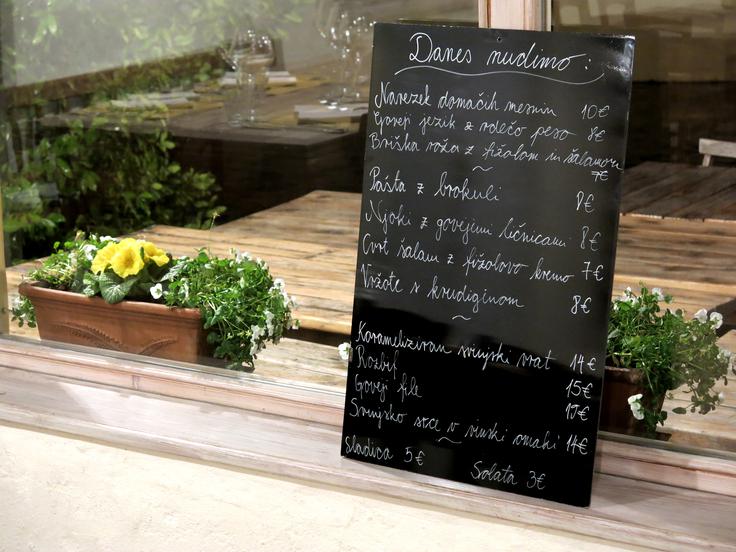 Danes nudimo:
Narezek domačih mesnin 10€
Goveji jezik z rdečo peso 8€
Briška roža z fižolom in šalamom
7€
~
Pašta z brokuli 8€
Njoki z govejimi ličnicami 8€
Cvrt šalam z fižolovo kremo 7€
Vržote s krudiginom 8€
~
Karameliziran svinjski vrat 14€
Rozbif 15€
Goveji file 17€
Svinjsko srce v vinski omaki 14€
~
Sladica 5€
Solata 3€